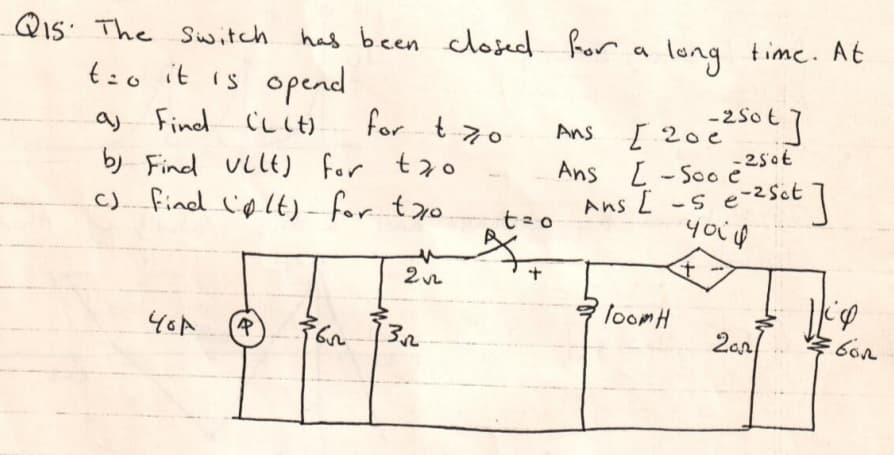 Q15. The switch has been closed for a long time. At
t=0 it is opend
a) Find iL(t) for t ≥ 0 Ans [20e^-250t]
b) Find vL(t) for t ≥ 0 Ans [-500 e^-250t
c) find iφ(t) for t ≥ 0 Ans [-5 e^-250t]
t=0
40iφ
2Ω
+
+ -
40A
6Ω
3Ω
100mH
20Ω
iφ
60Ω